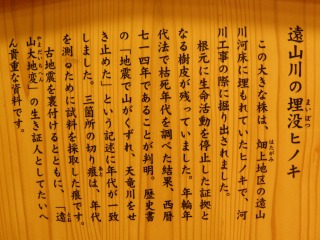 遠山川の埋没ヒノキ
まいぼつ
この大きな株は、畑上地区の遠山
はたがみ
川河床に埋もれていたヒノキで、河
川工事の際に掘り出されました。
根元に生命活動を停止した証拠と
なる樹皮が残っていました。年輪年
代法で枯死年代を調べた結果、西暦
七一四年であることが判明。歴史書
の「地震で山がくずれ、天竜川をせ
き止めた」という記述に年代が一致
しました。三箇所の切り痕は、年代
あと
を測るために試料を採取した痕です。
古地震を裏付けるとともに、「遠
山大地変」の生き証人としてたいへ
ん貴重な資料です。